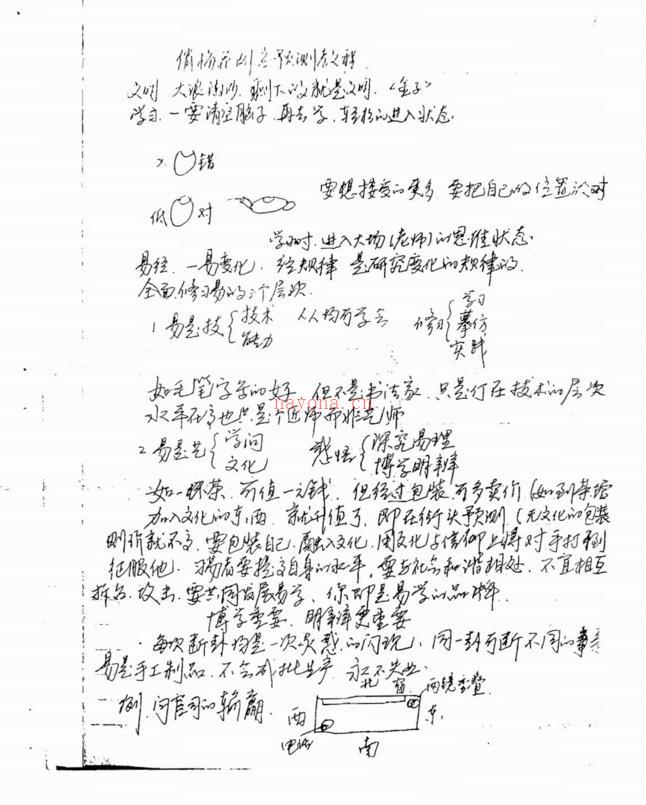 俏梅花周易预测教程
文明 大浪淘沙,剩下的就是文明.〈金子〉
学习.一要清空脑子.再去学.轻松的进入状态.
错
低 对
要想接受的更多 要把自己的位置於对
学习时.进入大场(老师)的思维状态.
易经.一易变化.经规律 是研究变化的规律的.
全面修习易的三个层次.
1 易是技 技术 能力 人人均可学会 修习 学习 摹仿 实践
如毛笔字写的好.但不是书法家.只是行在技术的层次
水平在高也只是个匠师而非艺师.
nayona.cn
2 易是艺 学问 文化 感悟 探究易理 博学明辨
如一杯茶.可值一元钱.但经过包装.可多卖价(如到茶馆
加入文化的东西.就升值了,即在街头预测(无文化的包装
则价就不高.要包装自己.融入文化.用文化与信仰上将对手打倒
征服他.习易者要提高自身的水平,要与社会和谐相处.不宜相互
拆台.攻击.要共同发展易学.你即是易学的品牌.
博学重要.明辨更重要
·每次断卦均是一次灵感的闪现,同一卦可断不同的事
易是手工制品.不会成批生产.永不失业.
例.问官司的输赢.
北 窗 两镜重叠
西 东.
电话 南